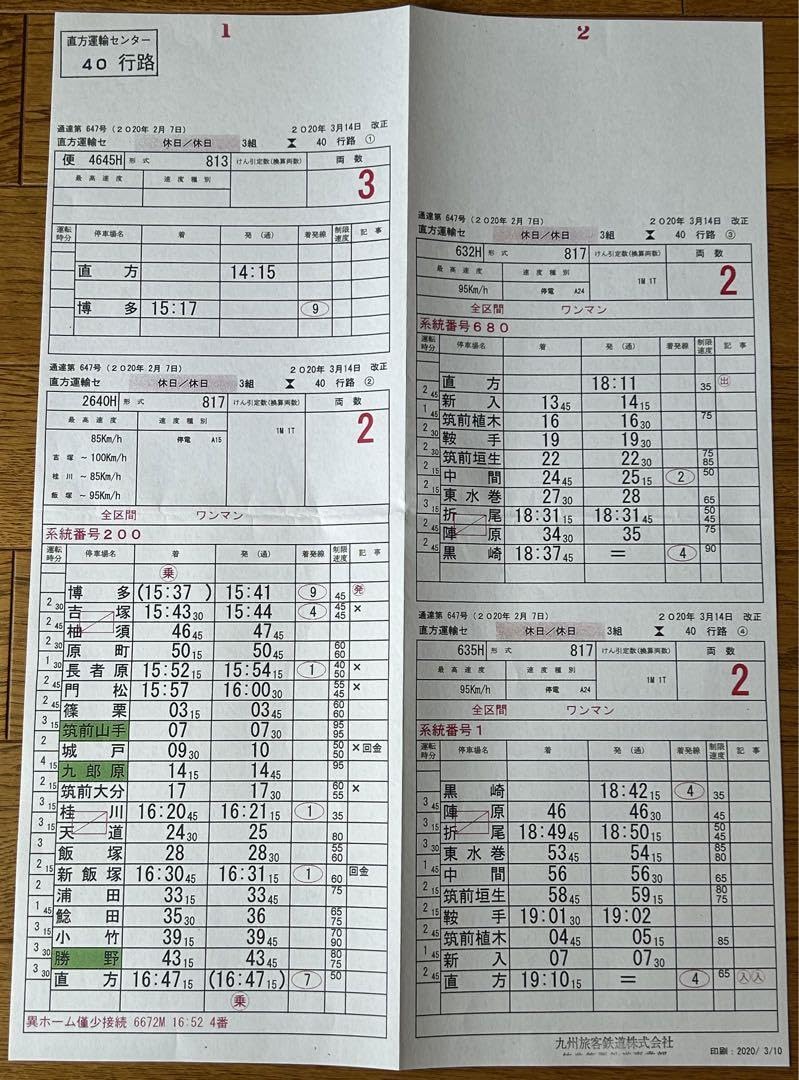 1
直方運輸センター
40 行路
通達第 647号 (2020年 2月 7日) 2020年 3月14日 改正
直方運輸セ 休日/休日 3組 40 行路 ①
便 4645H 形式 813 けん引定数(換算両数) 両数
最高速度 速度種別 3
運転時分 停車場名 着 発(通) 着発線 制限速度 記事
直方 14:15
博多 15:17 9
通達第 647号 (2020年 2月 7日) 2020年 3月14日 改正
直方運輸セ 休日/休日 3組 40 行路 ②
2640H 形式 817 けん引定数(換算両数) 両数
最高速度 速度種別 1M 1T 2
85Km/h 停電 A15
吉塚 ~100Km/h
桂川 ~85Km/h
飯塚 ~95Km/h
全区間 ワンマン
系統番号200
運転時分 停車場名 着 発(通) 着発線 制限速度 記事
乗
博多 (15:37 ) 15:41 9 45 発
2 30
吉塚 15:43 30 15:44 4 45 45 ×
2 45
柚須 46 45 47 45
2 30
原町 50 15 50 45 60 60
1 30
長者原 15:52 15 15:54 15 1 40 50 ×
2 45
門松 15:57 16:00 30 55 45 ×
2 45
篠栗 03 15 03 45 60 60
3 15
筑前山手 07 07 30 95 95
2
城戸 09 30 10 50 50 ×回金
4 15
九郎原 14 15 14 45 95
2 15
筑前大分 17 17 30 60 55 ×
3 15
桂川 16:20 45 16:21 15 1 35
3 15
天道 24 30 25 80
3
飯塚 28 28 30 55 60
2 15
新飯塚 16:30 45 16:31 15 1 60 回金
2
浦田 33 15 33 45 75
1 45
鯰田 35 30 36 65 75
3 15
小竹 39 15 39 45 70 90
3 30
勝野 43 15 43 45 80 75
3 30
直方 16:47 15 (16:47 15) 7 50
乗
異ホーム僅少接続 6672M 16:52 4番
2
通達第 647号 (2020年 2月 7日) 2020年 3月14日 改正
直方運輸セ 休日/休日 3組 40 行路 ③
632H 形式 817 けん引定数(換算両数) 両数
最高速度 速度種別 1M 1T 2
95Km/h 停電 A24
全区間 ワンマン
系統番号680
運転時分 停車場名 着 発(通) 着発線 制限速度 記事
直方 18:11 35 出
2 45
新入 13 45 14 15
1 45
筑前植木 16 16 30 75
2 30
鞍手 19 19 30
2 30
筑前垣生 22 22 30 75 85
2 15
中間 24 45 25 15 2 50
2 15
東水巻 27 30 28 65
3 15
折尾 18:31 15 18:31 45 50 45
2 45
陣原 34 30 35 75
2 45
黒崎 18:37 45 = 4 90
通達第 647号 (2020年 2月 7日) 2020年 3月14日 改正
直方運輸セ 休日/休日 3組 40 行路 ④
635H 形式 817 けん引定数(換算両数) 両数
最高速度 速度種別 1M 1T 2
95Km/h 停電 A24
全区間 ワンマン
系統番号1
運転時分 停車場名 着 発(通) 着発線 制限速度 記事
黒崎 18:42 15 4 35
3 45
陣原 46 46 30 50
3 15
折尾 18:49 45 18:50 15 45
3 30
東水巻 53 45 54 15 85 80
1 45
中間 56 56 30 50
2 15
筑前垣生 58 45 59 15 80 75
2 15
鞍手 19:01 30 19:02
2 45
筑前植木 04 45 05 15 85
1 45
新入 07 07 30
2 45
直方 19:10 15 = 4 65 入入
九州旅客鉄道株式会社
印刷:2020/ 3/10